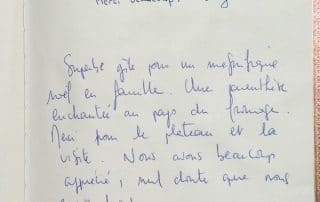 Merci beaucoup
Superbe gîte pour un magnifique
noël en famille. Une parenthèse
enchantée au pays du fromage.
Merci pour le plateau et la
visite. Nous avons beaucoup
apprécié, nul doute que nous